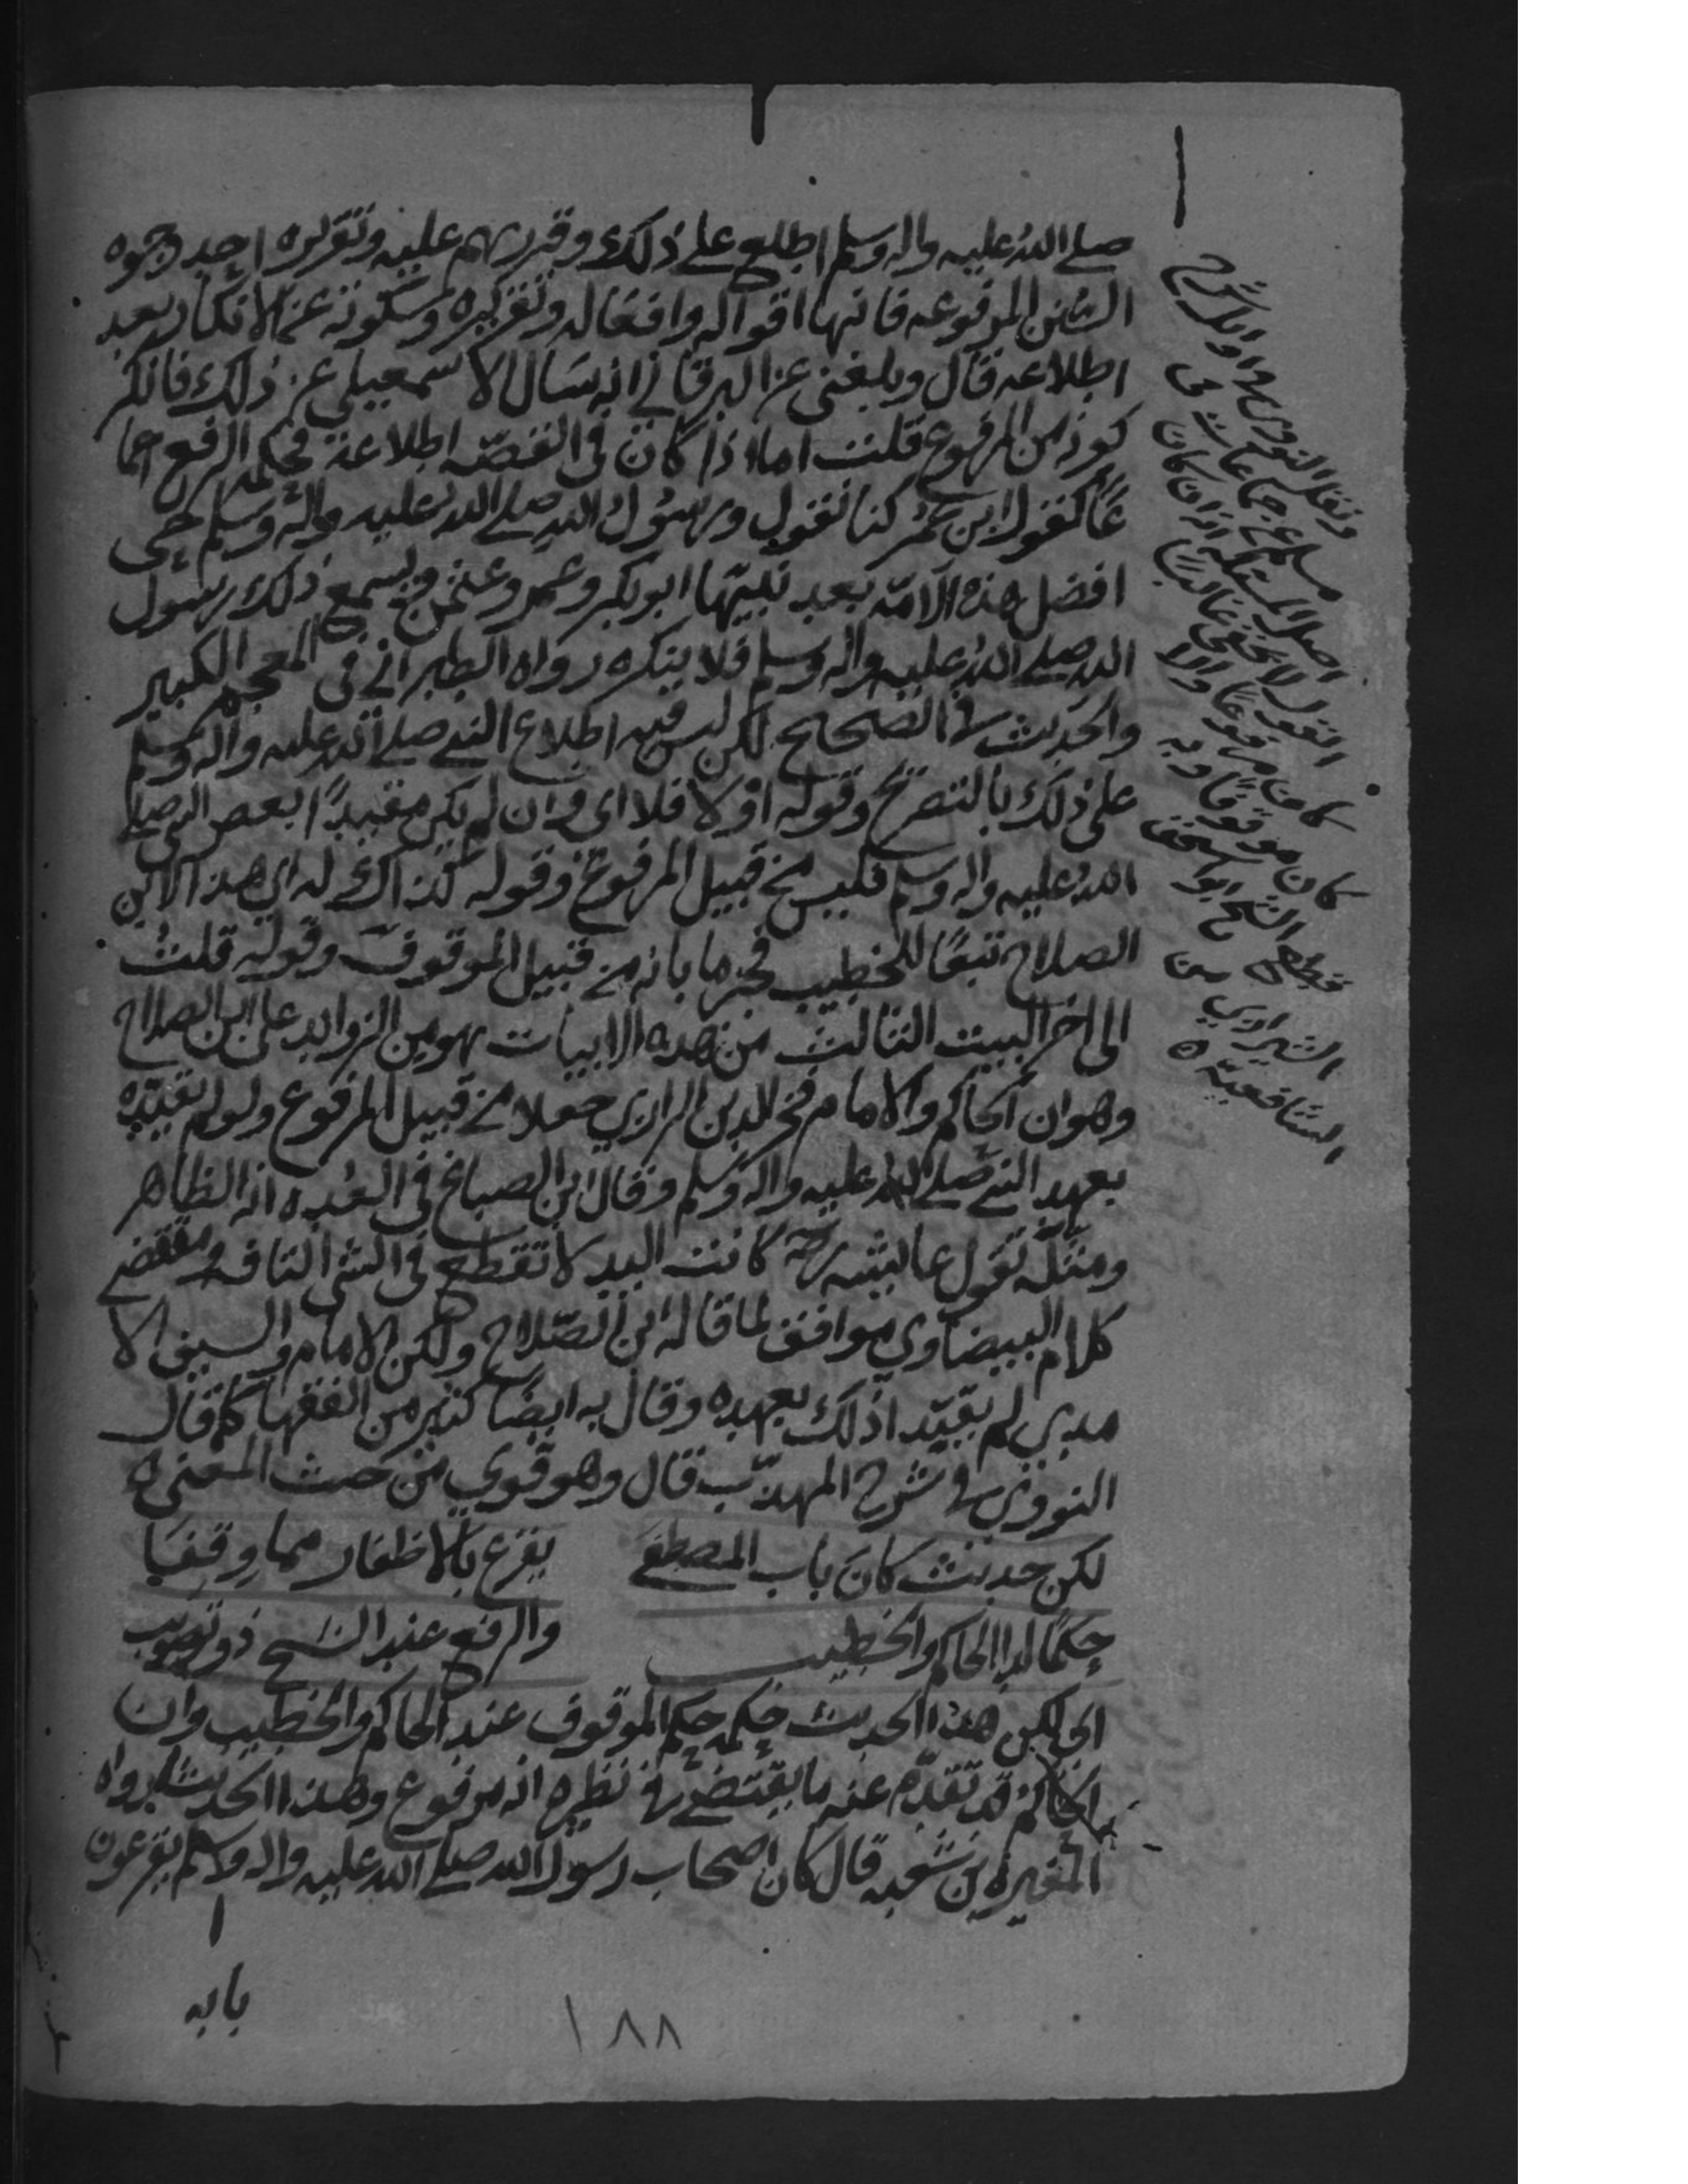 صلى الله عليه واله وسلم اطلع على ذلك وقررهم عليه وتقريره احد وجوه
السنن المرفوعه فانها اقواله وافعاله وتقريره وسكوته عن الانكار بعد
اطلاعه قال وبلغنى عن البرقاني انه سال الاسمعيلي عن ذلك فانكر
كونه من المرفوع قلت اما اذا كان فى القصّه اطلاعه فحكمه الرفع اجما
عًا كقول ابن عمر كنا نقول ورسول الله صلى الله عليه واله وسلم حى
افضل هذه الامّه بعد نبيّها ابو بكر وعمر وعثمن ويسمع ذلك رسول
الله صلى الله عليه واله وسلم فلا ينكره رواه الطبراني فى المعجم الكبير
والحديث في الصحيح لكن ليس فيه اطلاع النبي صلى الله عليه واله وسلم
على ذلك بالتصريح وقوله او لا فلا اى وان لم يكن مقيدًا بعصر النبي صلى
الله عليه واله وسلم فليس من قبيل المرفوع وقوله كذاك له اي هذا لابن
الصلاح تبعًا للخطيب فجزما بانه من قبيل الموقوف وقوله قلتُ
الى اخر البيت الثالث من هذه الابيات هو من الزوايد على ابن الصلاح
وهو ان الحاكم والامام فخر الدين الرازي جعلاه من قبيل المرفوع ولو لم يقيّده
بعهد النبي صلى الله عليه واله وسلم وقال ابن الصباغ فى العُده انه الظاهر
ومثله بقول عايشه كانت اليد لا تقطع فى الشى التافه ومقتضى
كلام البيضاوي موافق لما قاله ابن الصّلاح ولكن الامام والسيف الا
مدي لم يقيّدا ذلك بعهده وقال به ايضًا كثير من الفقها كما قال
النووي في شرح المهذّب قال وهو قوي من حيث المعنى ه
لكن حديث كان باب المصطفى يقرع بالاظفار مما وقفا
حكمًا لدا الحاكم والخطيب والرفع عند الشيخ ذو تصويب
اى لكن هذا الحديث حكمه حكم الموقوف عند الحاكم والخطيب وان
الحاكم قد تقدّم عنه ما يقتضى في نظيره انه مرفوع وهذا الحديث رواه
المغيرة بن شعبه قال كان اصحاب رسول الله صلى الله عليه واله وسلم يقرعون
بابه
١٨٨
ونقل النووي في اوايل شرح
مسلم عن جماعات في
اصل المسئلة انه ان كان
الفعل لا يخفى غالبا
كان مرفوعًا والا
كان موقوفًا وبه
قطع الشيخ ابو اسحق
الشيرازي من
الشافعيّة ه